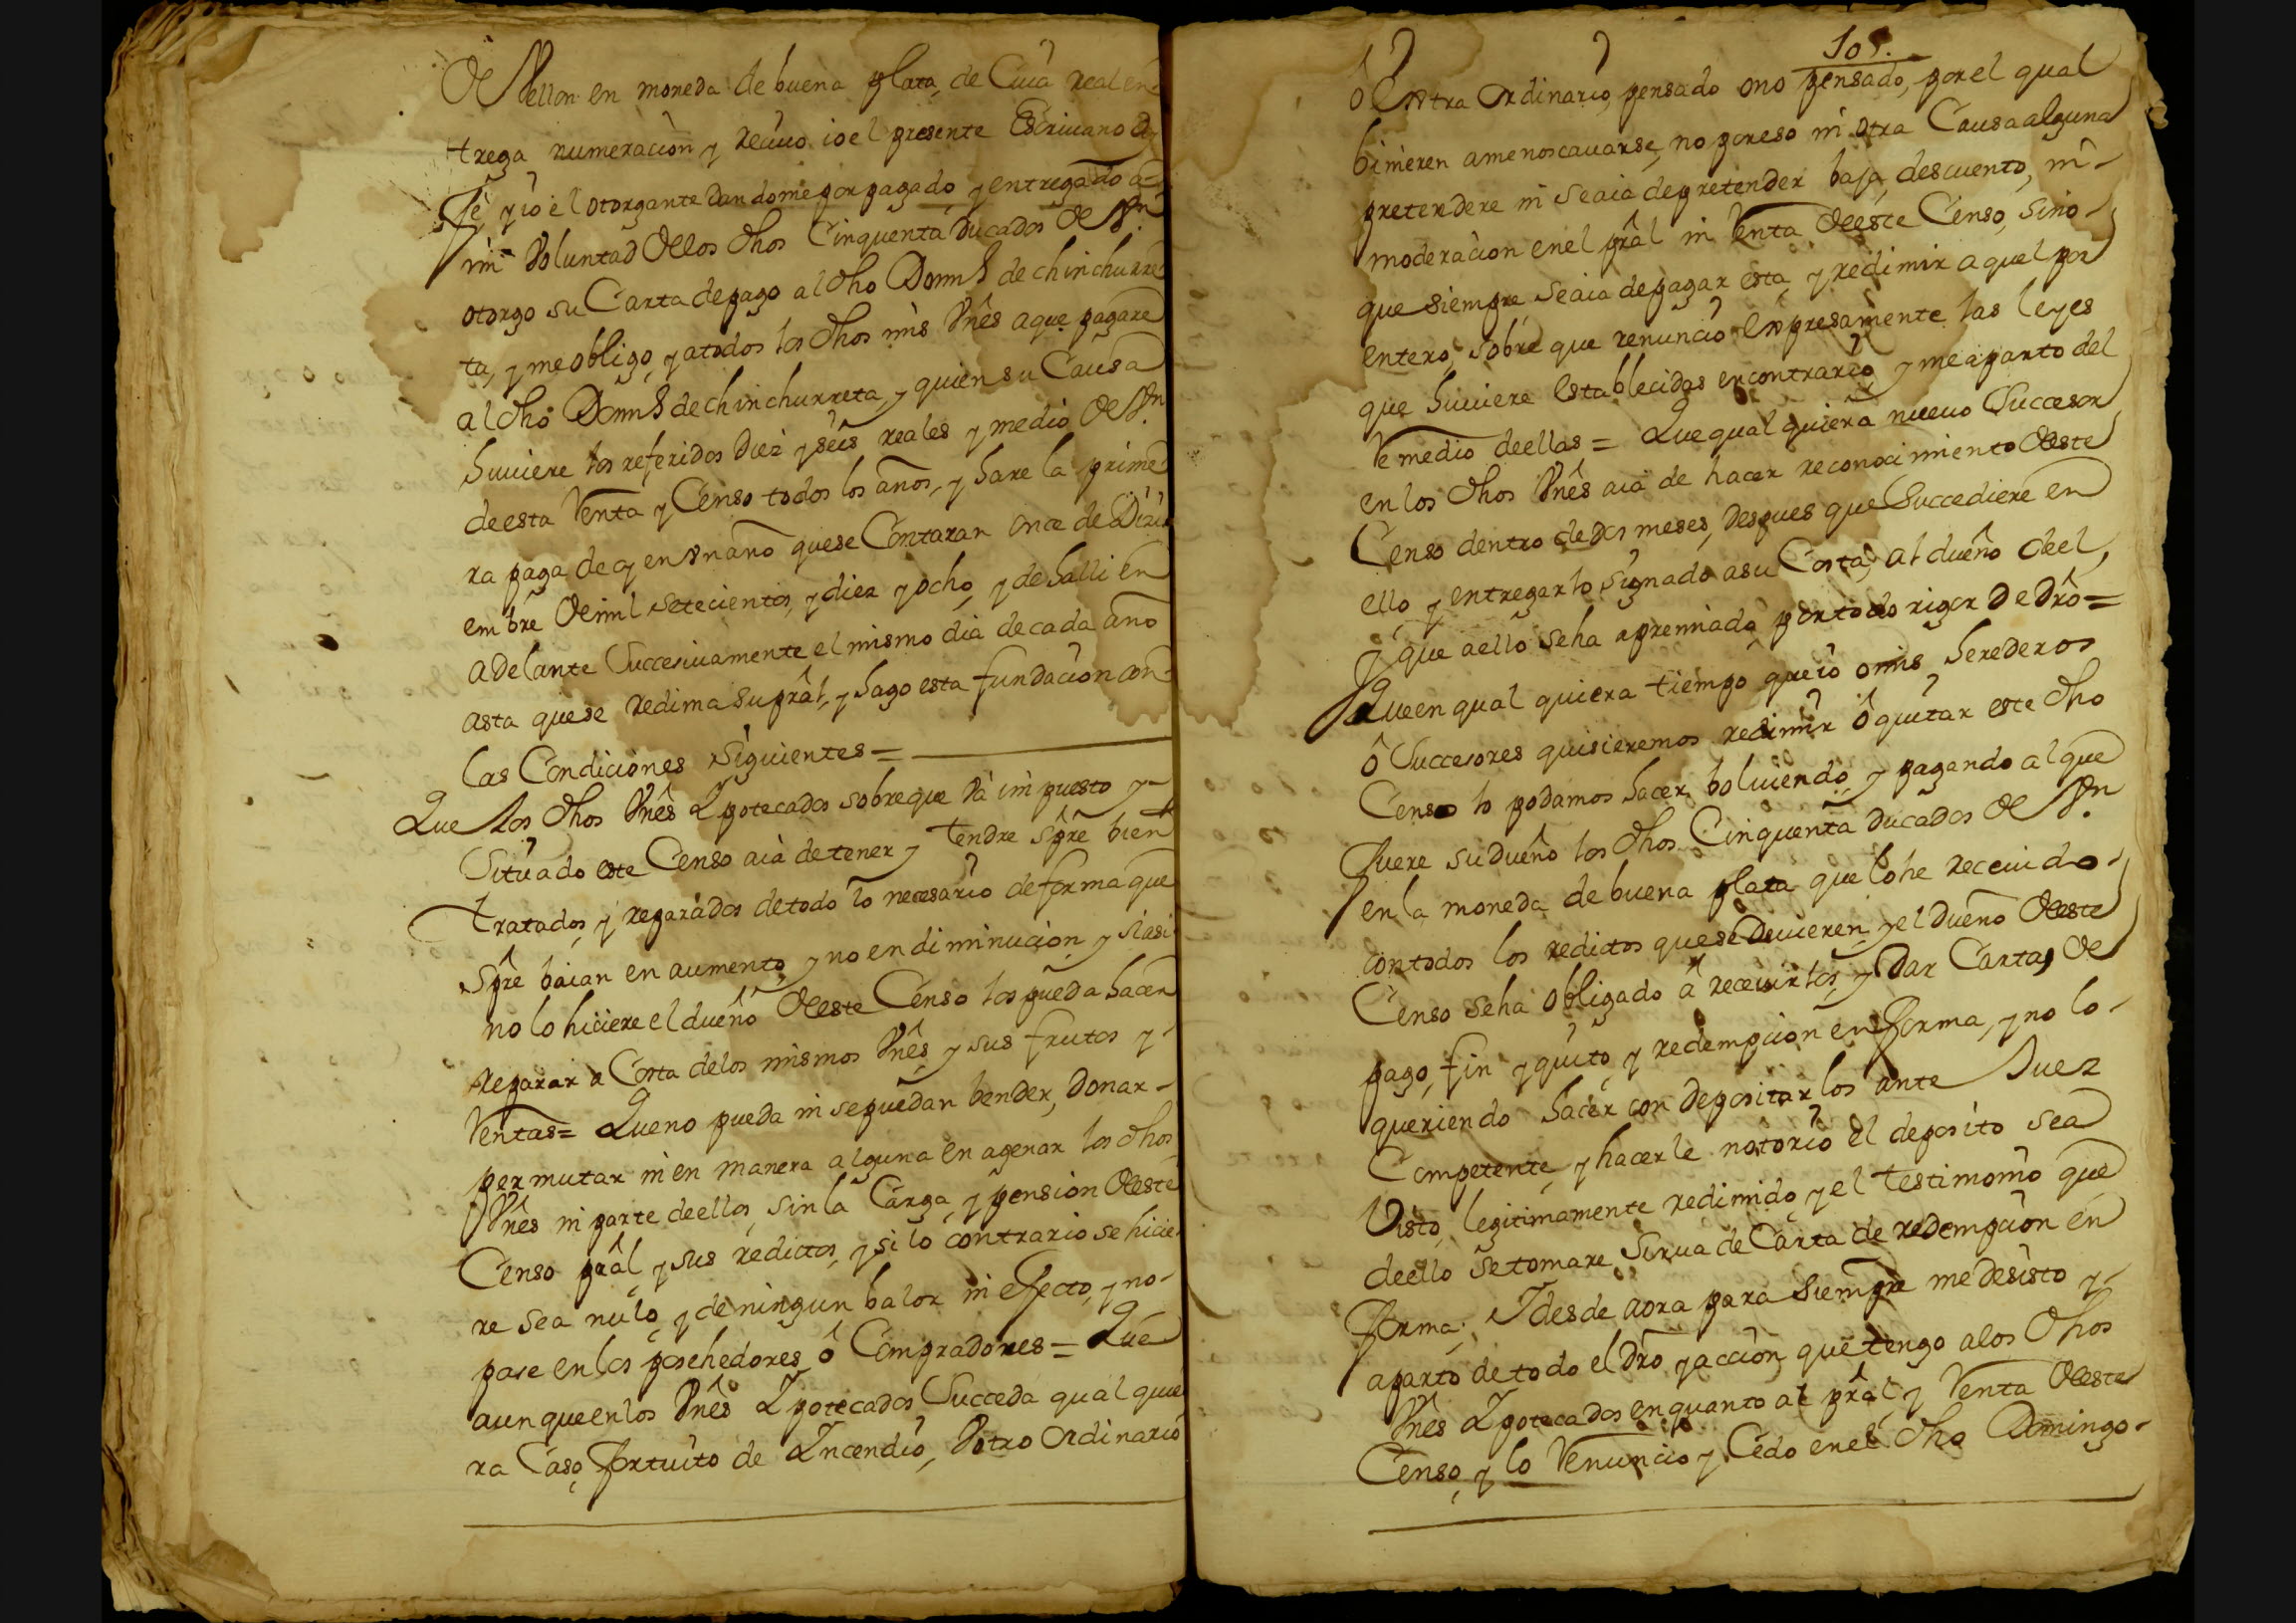 De Vellon en moneda de buena plata, de Cuia real en-
trega numeracion y reciuo io el presente Escriuano doy
fe, y io el otorgante dandome por pagado, y entregado a
mi Voluntad de los dhos Cinquenta ducados de Vn
otorgo su Carta de pago al dho Domingo de chinchurre
ta, y me obligo, y a todos los dhos mis Vnês a que pagare
al dho Domingo de chinchurreta, y quien su Causa
huuiere los referidos diez y seis reales y medio de Vn
de esta Renta y Censo todos los años, y hare la prime
ra paga de oy en Vn año que se Contaran once de Dizi
embre de mil setecientos, y diez y ocho, y de halli en
adelante Succesiuamente el mismo dia de cada año
asta que se redima su prâl, y hago esta fundacion con
las Condiciones Siguientes=
Que los dhos Vnês Ypotecados sobre que Va impuesto y
Situado este Censo aia de tener y tendre spre bien
tratados, y reparados de todo lo necesario de forma que
Spre baian en aumento, y no en diminucion, y si asi
no lo hiciere el dueño de este Censo los pueda hacer
reparar a Costa de los mismos Vnês, y sus frutos y
Rentas= Que no pueda ni se puedan bender, donar-
permutar ni en manera alguna en agenar los dhos
Vnês ni parte de ellos, sin la Carga, y pension de este
Censo prâl, y sus redictos, y si lo contrario se hicie
re sea nulo, y de ningun balor ni efecto, y no-
pase en los posehedores, ô Compradores= Que
aunque en los Vnês Ypotecados Succeda qual quie
ra Caso, fortuito de Yncendio, V otro ordinario
105.
ô Extra ordinario, pensado o no pensado, por el qual
binieren a menoscauarse, no por eso ni otra Causa alguna
pretendere ni se aia de pretender baja, descuento, ni-
moderacion en el prâl ni Renta de este Censo, Sino-
que siempre, se aia de pagar esta, y redimir aquel por
entero, sobre que renuncio Expresamente las leyes
que huuiere establecidas en contrario, y me aparto del
Remedio de ellas= Que qual quiera nueuo Succesor
en los dhos Vnês aia de hacer reconocimiento de este
Censo dentro de dos meses, despues que Succediere en
ello, y entregarlo signado a su Costa, al dueño de el,
y que a ello se ha apremiado por todo rigor de drô=
Que en qual quiera tiempo que io o mis herederos
ô Succesores quisieremos redimir ô quitar este dho
Censo lo podamos hacer, boluiendo, y pagando al que
fuere su dueño los dhos Cinquenta ducados de Vn
en la moneda de buena plata que lo he receuido-
con todos los redictos que se deuieren, y el dueño de este
Censo se ha obligado â receuirlos, y dar Carta, de
pago, fin y quito, y redempcion en forma, y no lo-
queriendo hacer con depositarlos ante Juez
Competente, y hacerle notorio el deposito sea
Visto, legitimamente redimido, y el testimonio que
de ello se tomare Sirua de Carta de redempcion en
forma: Y desde aora para Siempre me desisto y
aparto de todo el drô, y accion que tengo a los dhos
Vnês Ypotecados en quanto al prâl, y Renta de este
Censo, y lo Renuncio y Cedo en el dho Domingo-